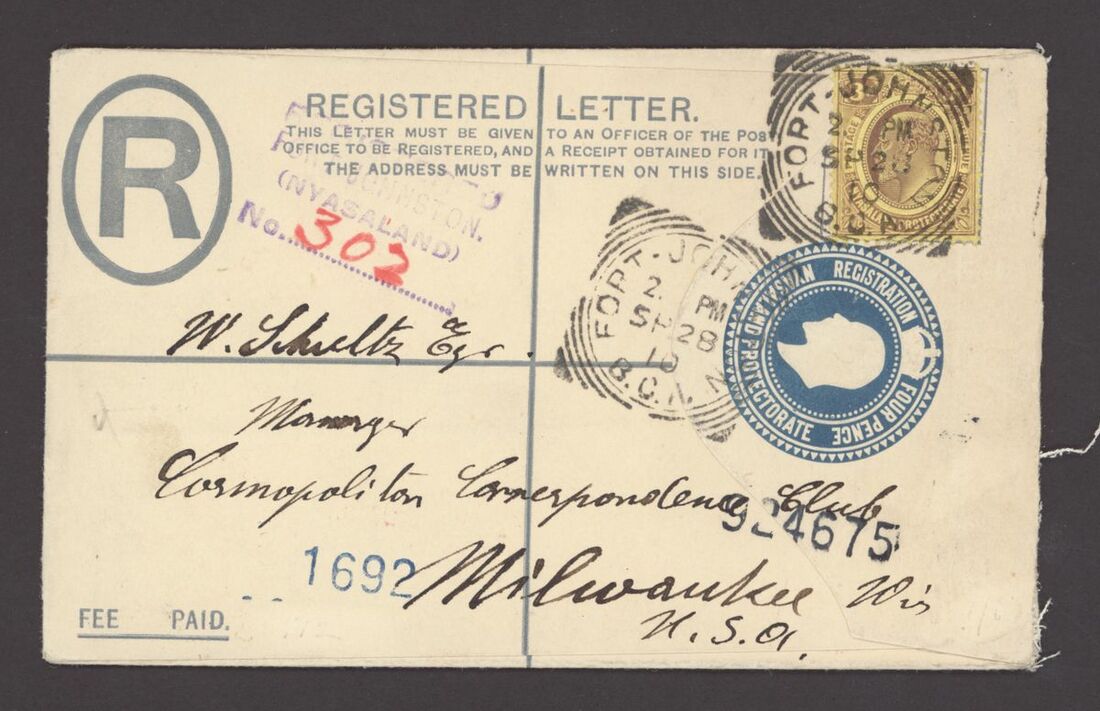 R
REGISTERED LETTER.
THIS LETTER MUST BE GIVEN TO AN OFFICER OF THE POST
OFFICE TO BE REGISTERED, AND A RECEIPT OBTAINED FOR IT
THE ADDRESS MUST BE WRITTEN ON THIS SIDE.
JOHNSTON.
(NYASALAND)
No. 302
FORT-JOHNSTON
2 PM
SP 28
10
B.C.A.
FORT-JOHN
2 PM
SP 28
10
B.C.A.
NYASALAND PROTECTORATE
REGISTRATION FOUR PENCE
W. Schultz Esqr.
Manager
Cosmopolitan Correspondence Club
924675
1692
Milwaukee Wis
U.S.A.
FEE PAID.